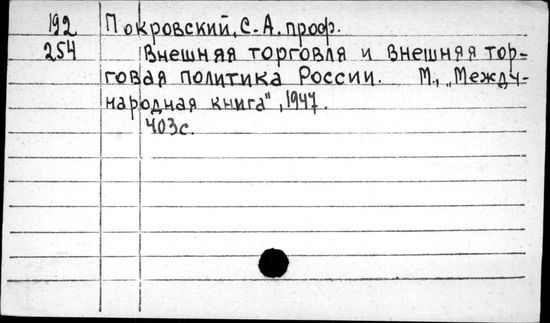 192 Покровский, С.А. проф.
254 Внешняя торговля и внешняя тор-
говая политика России. М., „Между-
народная книга", 1947.
403с.